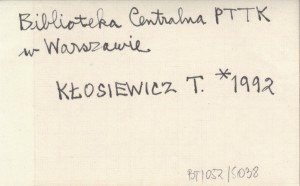 Biblioteka Centralna PTTK
w Warszawie
KŁOSIEWICZ T. *1992
BT/052/